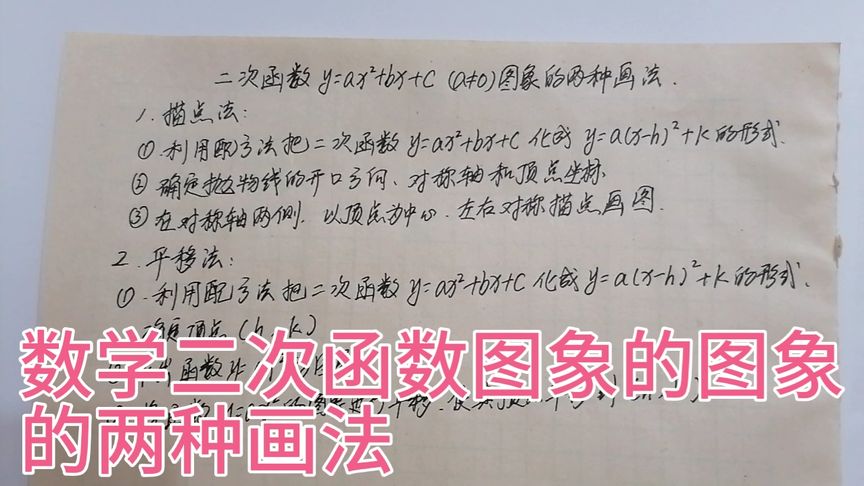 二次函数 y=ax²+bx+c (a≠0)图象的两种画法.
1. 描点法:
① 利用配方法把二次函数 y=ax²+bx+c 化成 y=a(x-h)²+k 的形式.
② 确定抛物线的开口方向、对称轴和顶点坐标.
③ 在对称轴两侧. 以顶点为中心. 左右对称描点画图.
2. 平移法:
①. 利用配方法把二次函数 y=ax²+bx+c 化成 y=a(x-h)²+k 的形式.
确定顶点 (h, k)
数学二次函数图象的图象
的两种画法